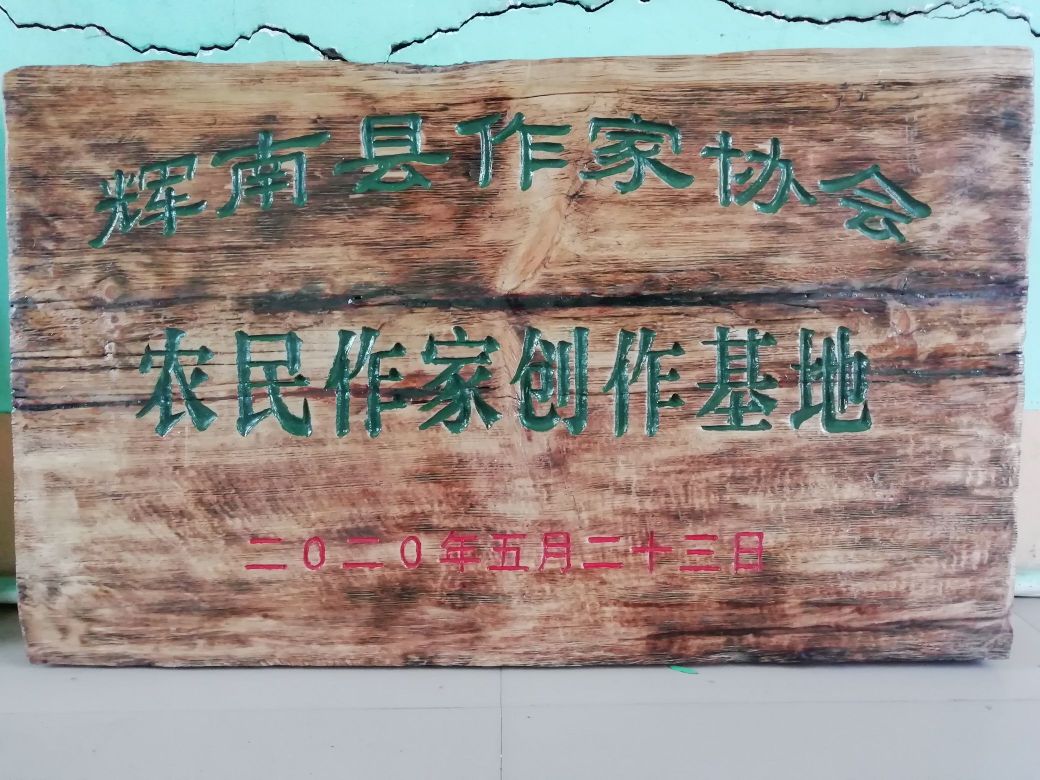 辉南县作家协会
农民作家创作基地
二〇二〇年五月二十三日